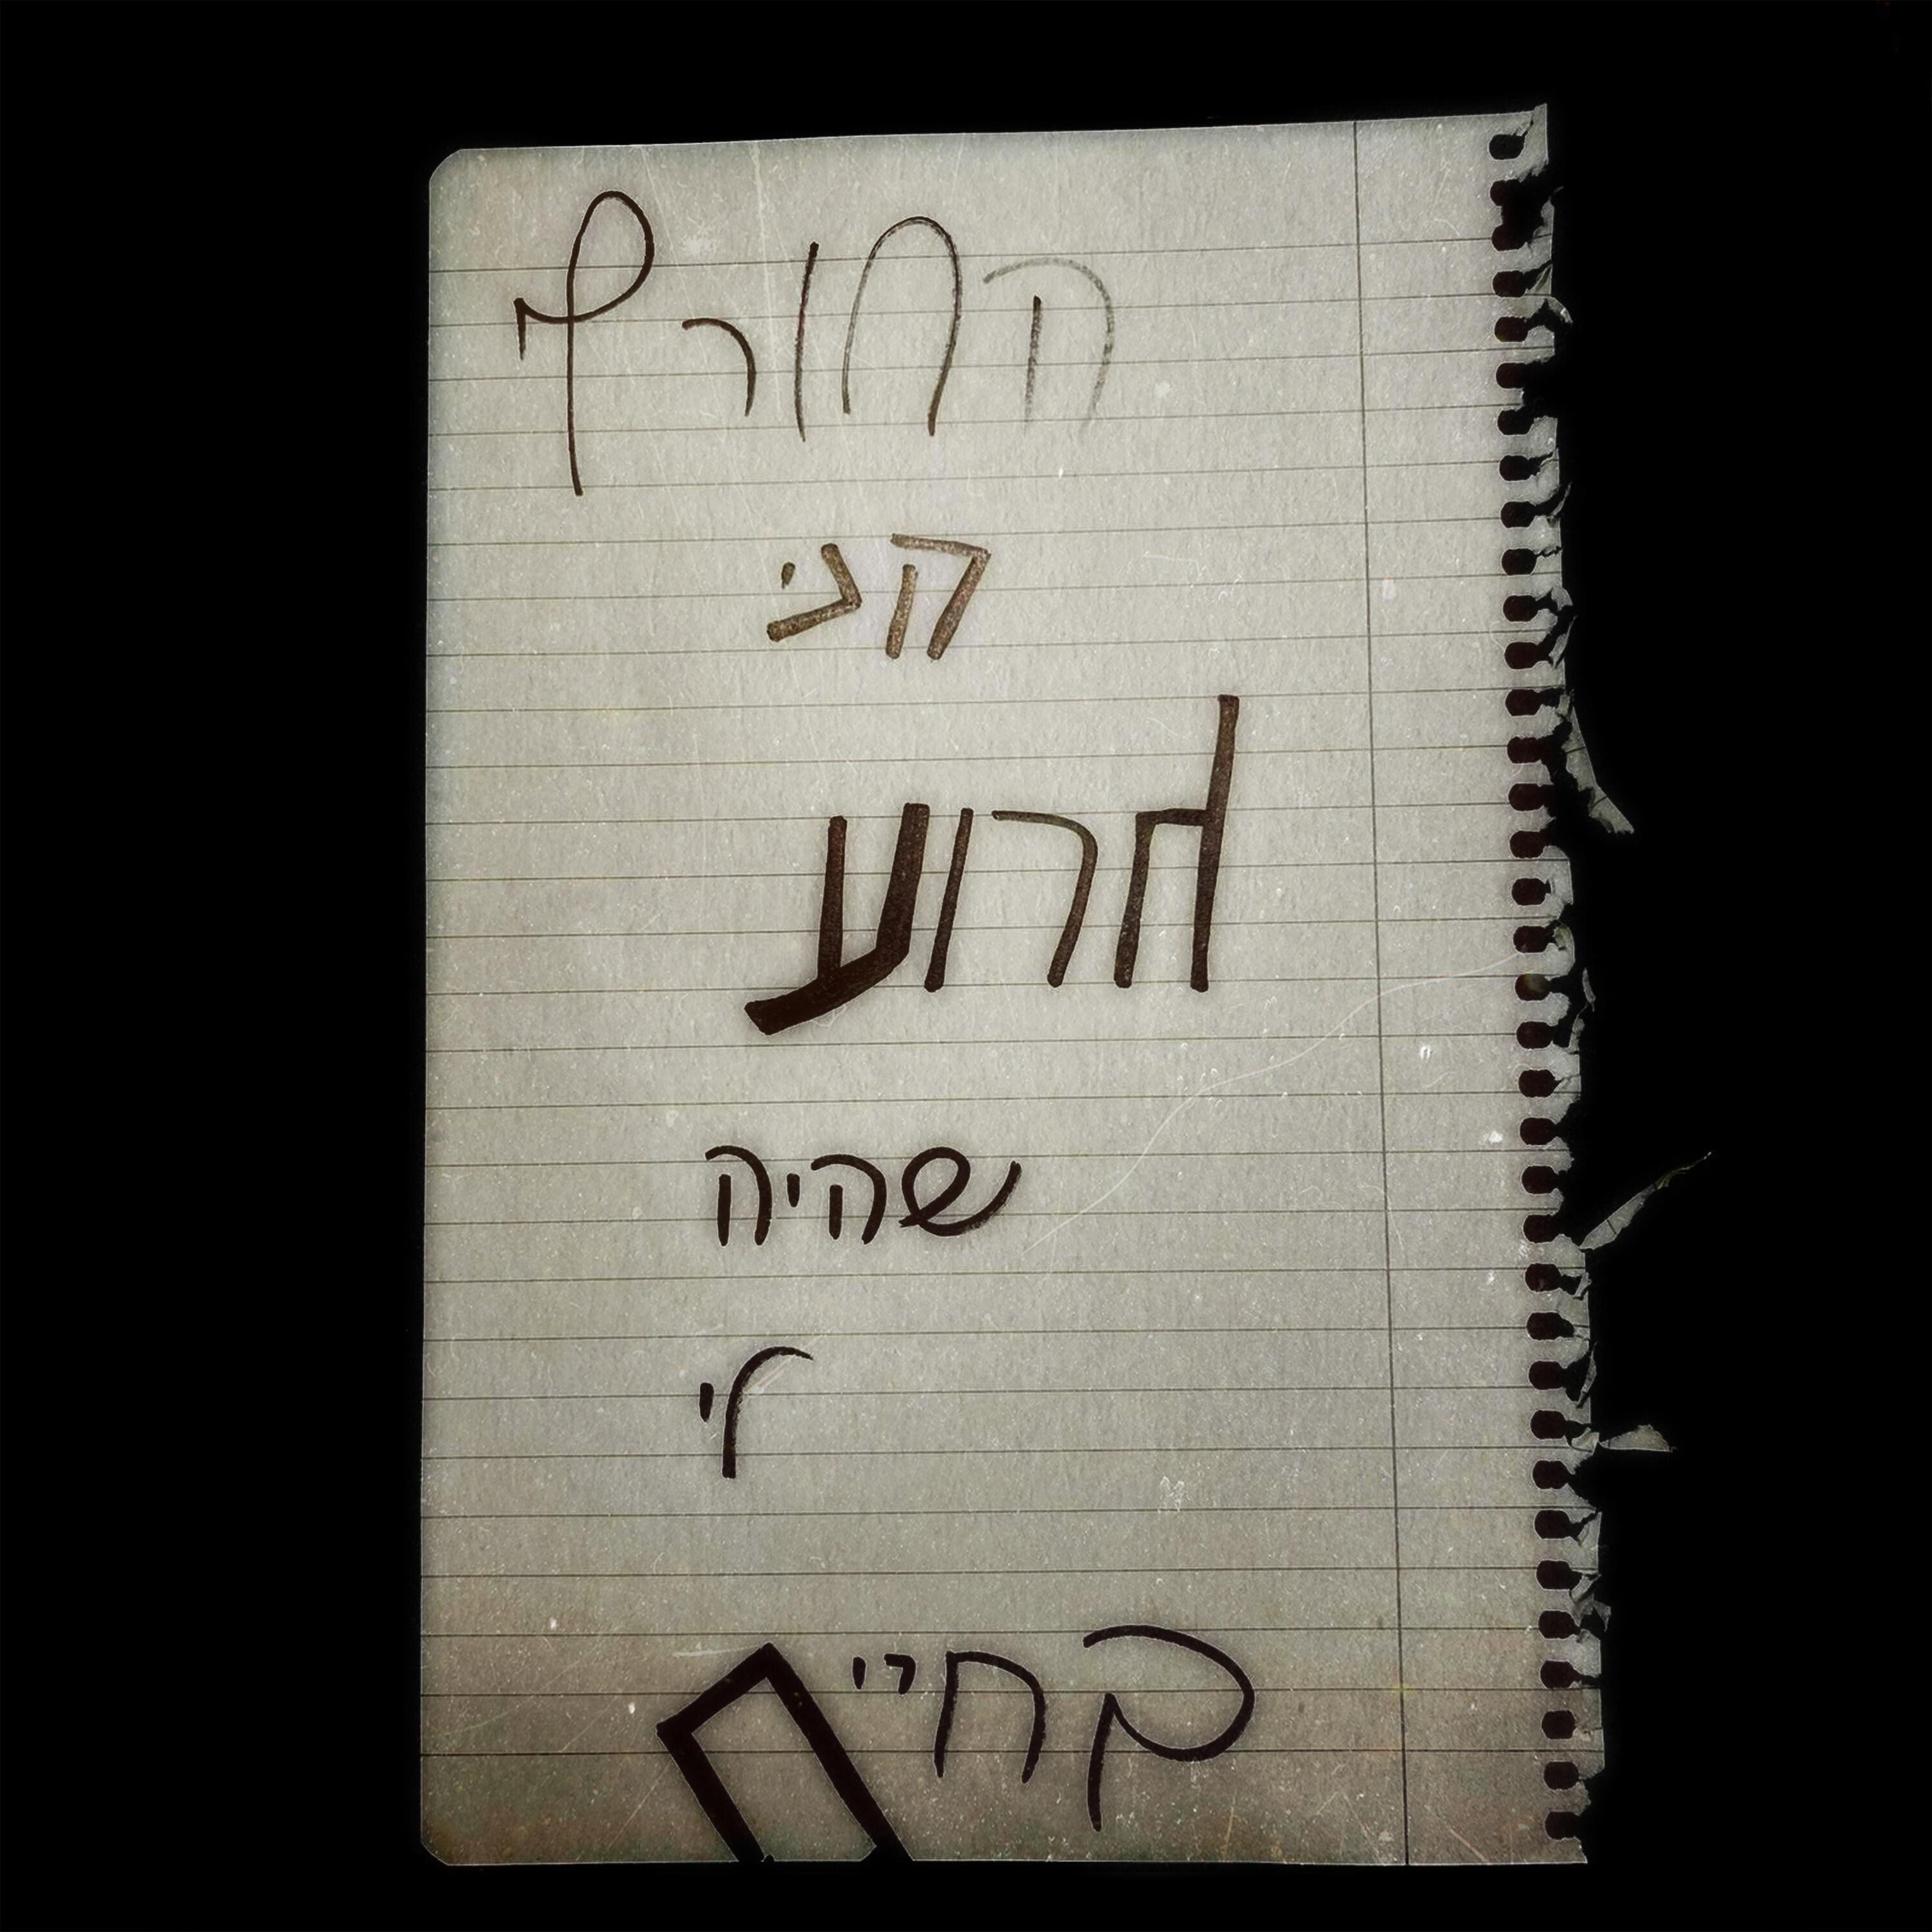 החורף
הכי
גרוע
שהיה
לי
בחיים